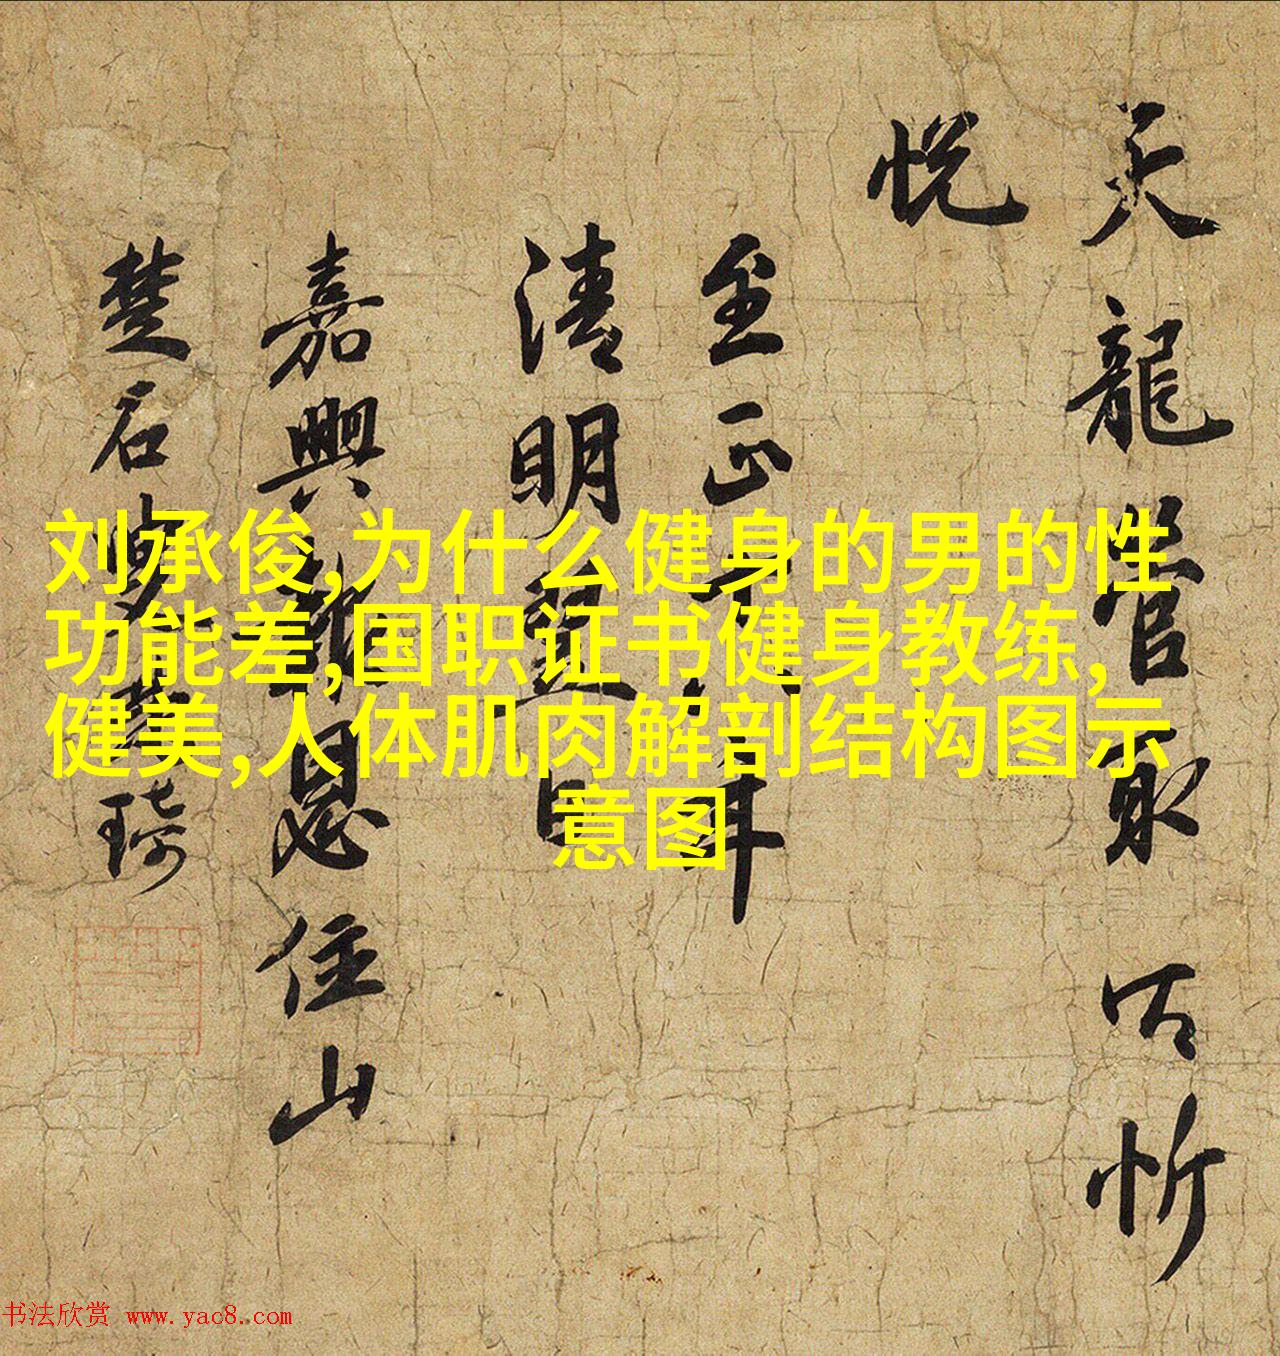 刘承俊,为什么健身的男的性
功能差,国职证书健身教练,
健美,人体肌肉解剖结构图示
意图
天龍管取忻
悦
至正年
清明日
嘉興恩住山
楚石琦
书法欣赏 www.yac8.com